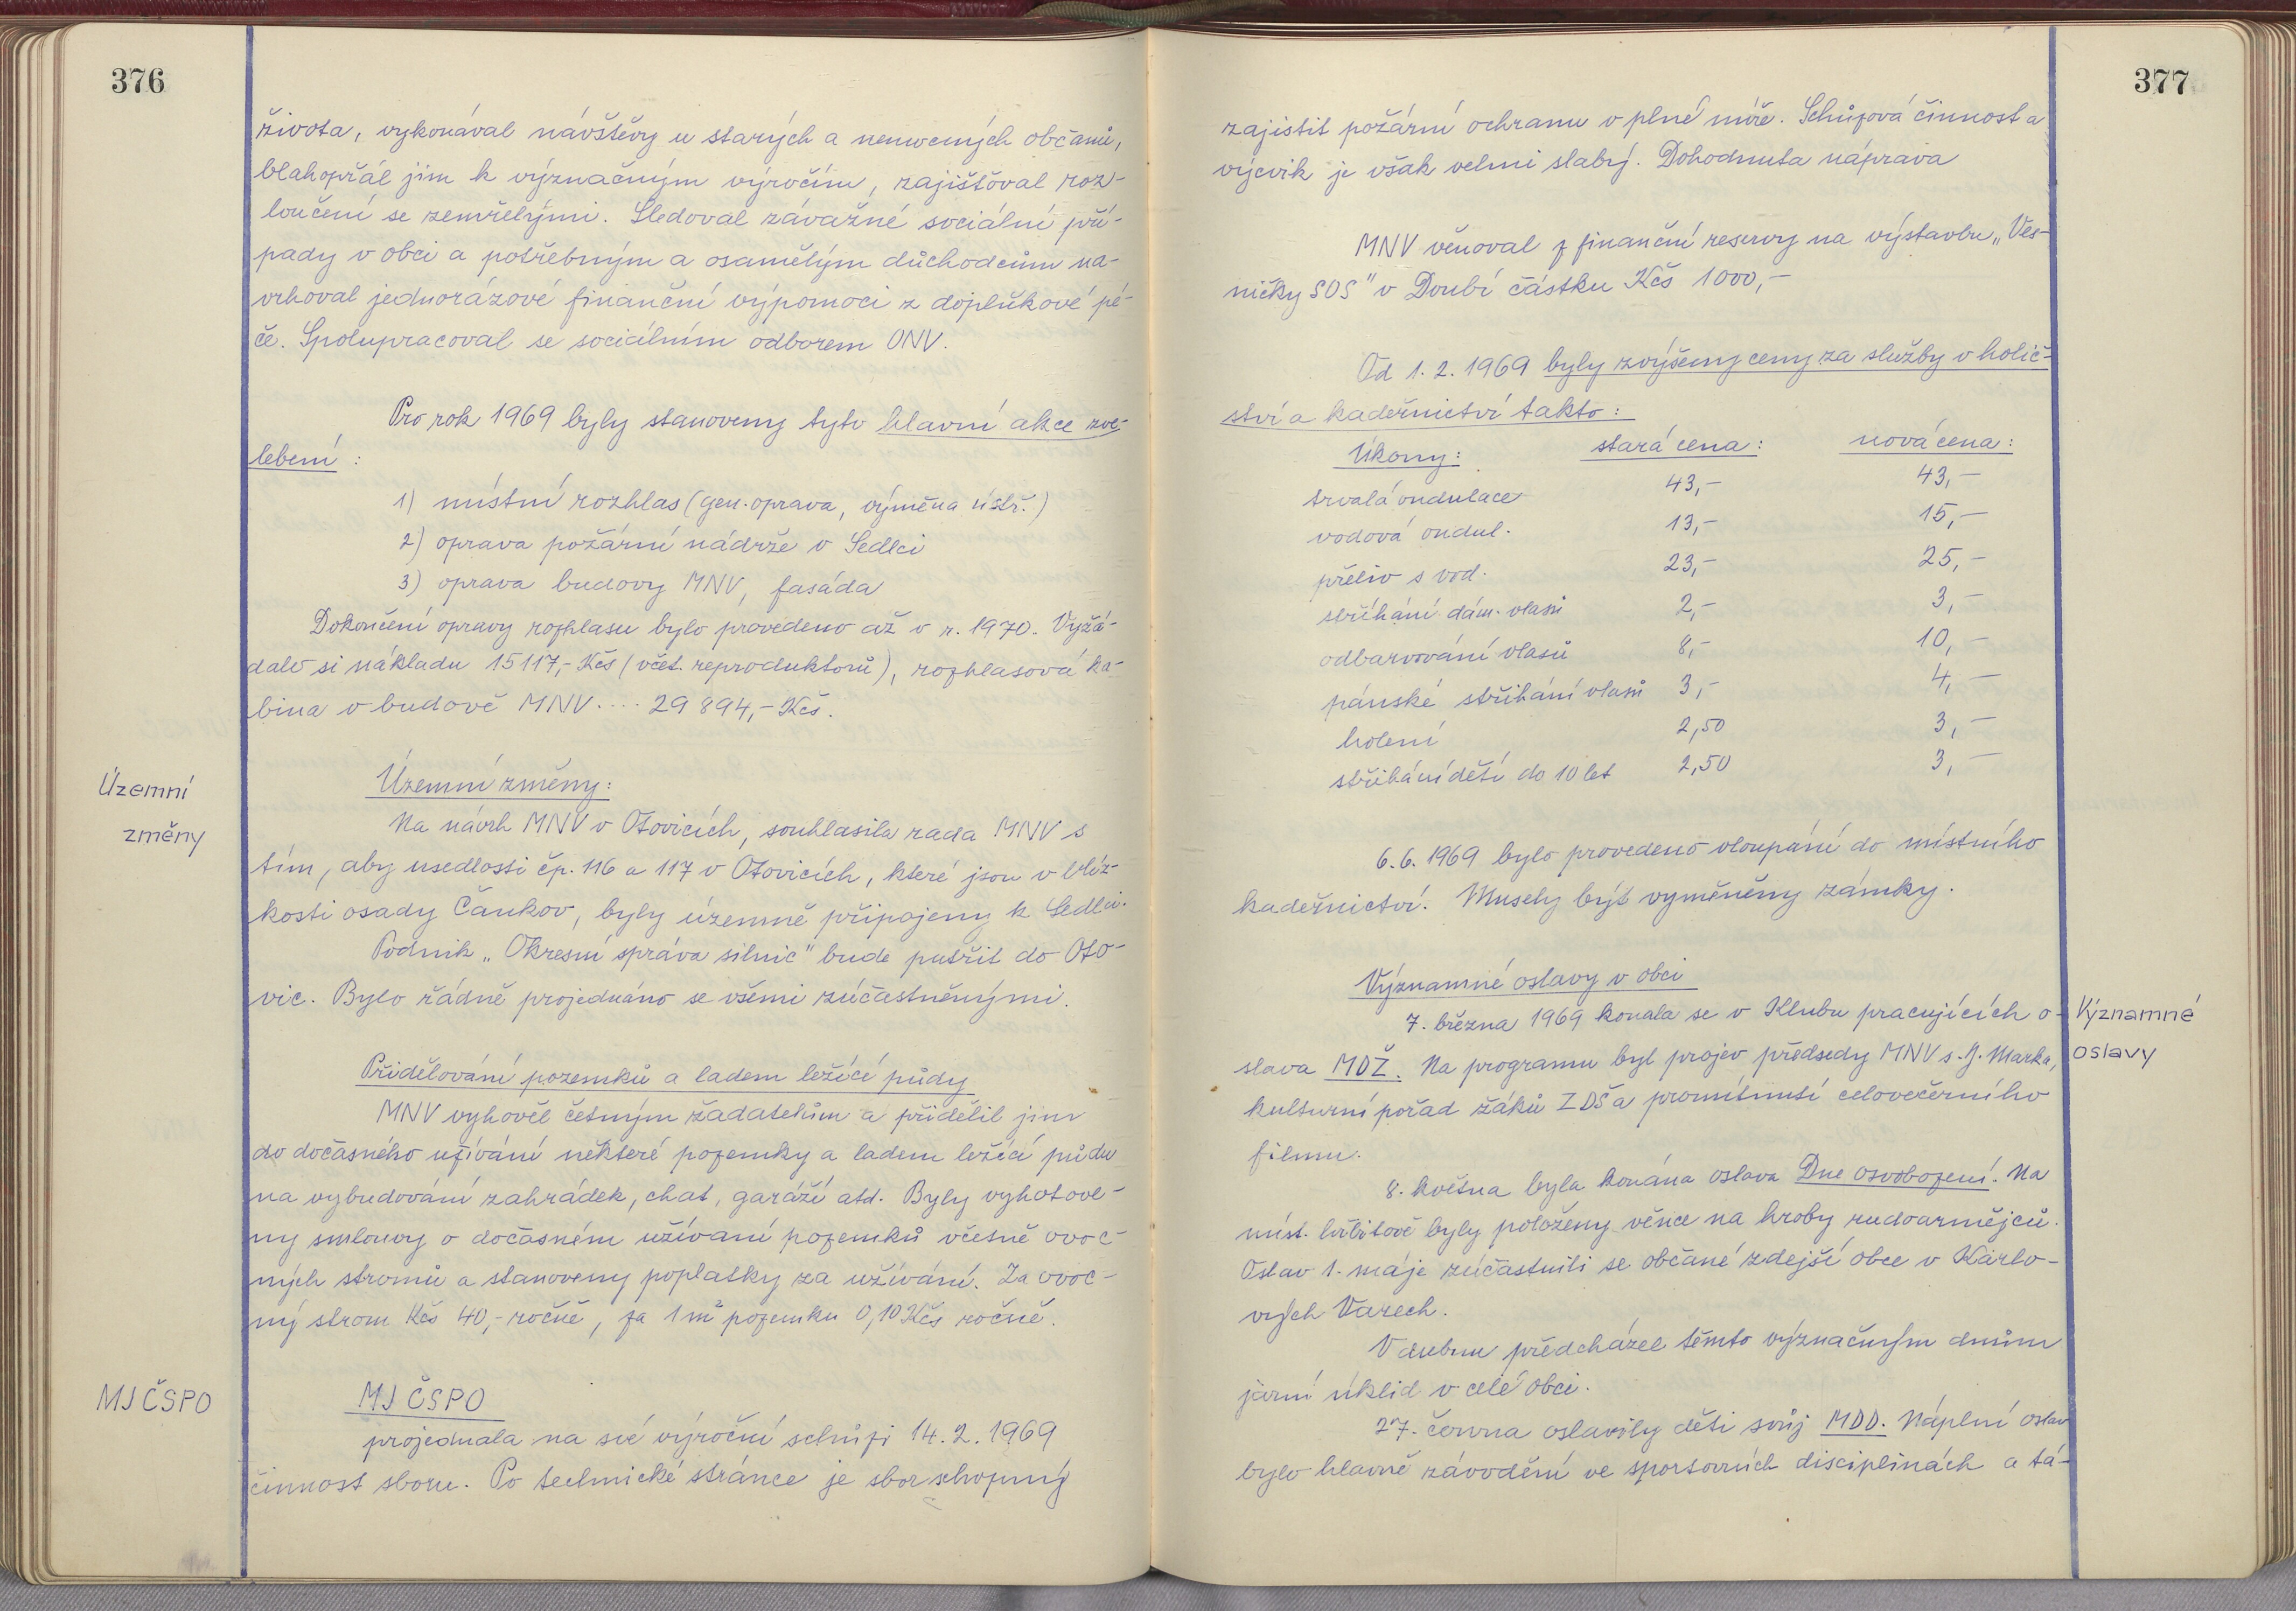 376
života, vykonával návštěvy u starých a nemocných občanů,
blahopřál jim k význačným výročím, zajišťoval roz-
loučení se zemřelými. Sledoval závažné sociální pří-
pady v obci a potřebným a osamělým důchodcům na-
vrhoval jednorázové finanční výpomoci z doplňkové pé-
če. Spolupracoval se sociálním odborem ONV.
Pro rok 1969 byly stanoveny tyto hlavní akce zve-
lebení:
1) místní rozhlas (gen. oprava, výměna ústř.)
2) oprava požární nádrže v Sedlci
3) oprava budovy MNV, fasáda
Dokončení opravy rozhlasu bylo provedeno až v r. 1970. Vyžá-
dalo si nákladu 15117,- Kčs (včet. reproduktorů), rozhlasová ka-
bina v budově MNV .... 29 894,- Kčs.
Územní
změny
Územní změny:
Na návrh MNV v Otovicích, souhlasila rada MNV s
tím, aby usedlosti čp. 116 a 117 v Otovicích, které jsou v blíz-
kosti osady Čankov, byly územně připojeny k Sedlci.
Podnik „Okresní správa silnic" bude patřit do Oto-
vic. Bylo řádně projednáno se všemi zúčastněnými.
Přidělování pozemků a ladem ležící půdy
MNV vyhověl četným žadatelům a přidělil jim
do dočasného užívání některé pozemky a ladem ležící půdu
na vybudování zahrádek, chat, garáží atd. Byly vyhotove-
ny smlouvy o dočasném užívaní pozemků včetně ovoc-
ných stromů a stanoveny poplatky za užívání. Za ovoc-
ný strom Kčs 40,- ročně, za 1 m² pozemku 0,10 Kčs ročně.
MJ ČSPO
MJ ČSPO
projednala na své výroční schůzi 14.2.1969
činnost sboru. Po technické stránce je sbor schopný
377
zajistit požární ochranu v plné míře. Schůzová činnost a
výcvik je však velmi slabý. Dohodnuta náprava
MNV věnoval z finanční reservy na výstavbu „Ves-
ničky SOS" v Doubí částku Kčs 1000,-
Od 1.2.1969 byly zvýšeny ceny za služby v holič-
ství a kadeřnictví takto:
Úkony: stará cena: nová cena:
trvalá ondulace 43,- 43,-
vodová ondul. 13,- 15,-
přeliv s vod. 23,- 25,-
stříhání dám. vlasů 2,- 3,-
odbarvování vlasů 8,- 10,-
pánské stříhání vlasů 3,- 4,-
holení 2,50 3,-
stříhání dětí do 10 let 2,50 3,-
6.6.1969 bylo provedeno vloupání do místního
kadeřnictví. Musely být vyměněny zámky.
Významné oslavy v obci
Významné
oslavy
7. března 1969 konala se v Klubu pracujících o-
slava MDŽ. Na programu byl projev předsedy MNV s. J. Marka,
kulturní pořad žáků ZDŠ a promítnutí celovečerního
filmu.
8. května byla konána oslava Dne osvobození. Na
míst. hřbitově byly položeny věnce na hroby rudoarmějců.
Oslav 1. máje zúčastnili se občané zdejší obce v Karlo-
vých Varech.
V dubnu předcházel těmto význačným dnům
jarní úklid v celé obci.
27. června oslavily děti svůj MDD. Náplní oslav
bylo hlavně závodění ve sportovních disciplinách a tá-